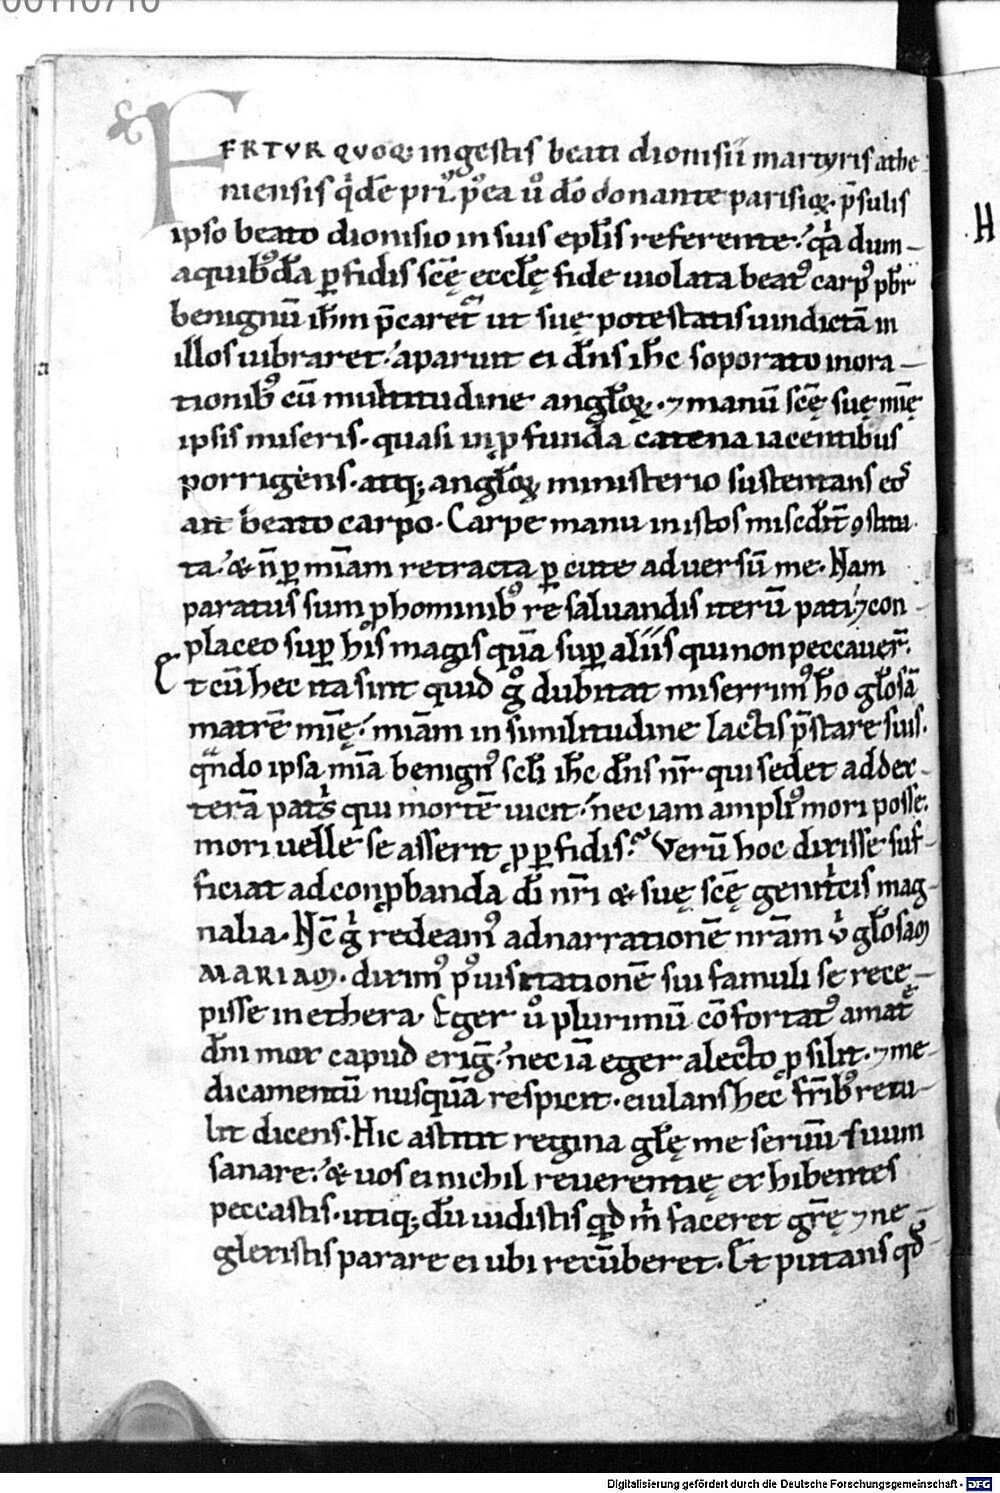 00110710
FERTVR QVOQ; in gestis beati dionisii martyris athe
niensis q̇dē pri᷒. p᷒ea u᷒ dō donante parisioꝝ. p̄sulis
ipso beato dionisio in suis ep̄lis referente. qa dum
aquib᷒dā ꝑfidis scę ecclę fide uiolata beat᷒ carp᷒ pb̄r
benignū ih̄m p̄caret᷑ ut suę potestatis uindictā in
illos uibraret. aparuit ei dn̄s ih̄c soporato inora
tionib᷒ cū multitudine angl̄oꝝ. ⁊ manū scę suę mīę
ipsis miseris. quasi in ꝓfunda catena iacentibus
porrigens. atq; angl̄oꝝ ministerio sustentans eo᷒
ait beato carpo. Carpe manu in istos misēdit ꝯstitu
ta. & n̄ ꝑ mīam retracta ꝑcute aduersū me. Nam
paratus sum ꝓ hominib᷒ resaluandis iterū pati ⁊ con
placeo suꝑ his magis quā suꝑ aliis qui non peccauer̄.
Et cū hec ita sint quid g̊ dubitat miserrim᷒ hō gl̄osā
matrē mīę. mīam in similitudine lactis p̄stare suis.
qn̄do ipsa mīa benign᷒ scl̄i ih̄c dn̄s nr̄ qui sedet addex
terā patris qui mortē uicit. nec iam ampli᷒ mori posse.
mori uelle se asserit ꝓ ꝑfidis. Verū hoc dixisse suf
ficiat ad conꝓbanda dī nr̄i & suę scę genitcis mag
nalia. Nc̄ g̊ redeam᷒ ad narrationē nr̄am ů gl̄osam
MARIAM. dixim᷒ p᷒ uisitationē sui famuli se rece
pisse in ethera. Eger u᷒ plurimū cōfortat᷒ amat᷑
dn̄i mox capud eriḡ. nec iā eger a lecto ꝓsilit. ⁊ me
dicamentū nusquā respicit. eiulans hec fr̄ib᷒ retu
lit dicens. Hic astitit regina gl̄ę me seruū suum
sanare. & uos ei nichil reuerentię exhibentes
peccastis. utiq; dū uidistis qd m̊ faceret gr̄ę ⁊ ne
glexistis parare ei ubi recūberet. Et putans qd̄
Digitalisierung gefördert durch die Deutsche Forschungsgemeinschaft - DFG